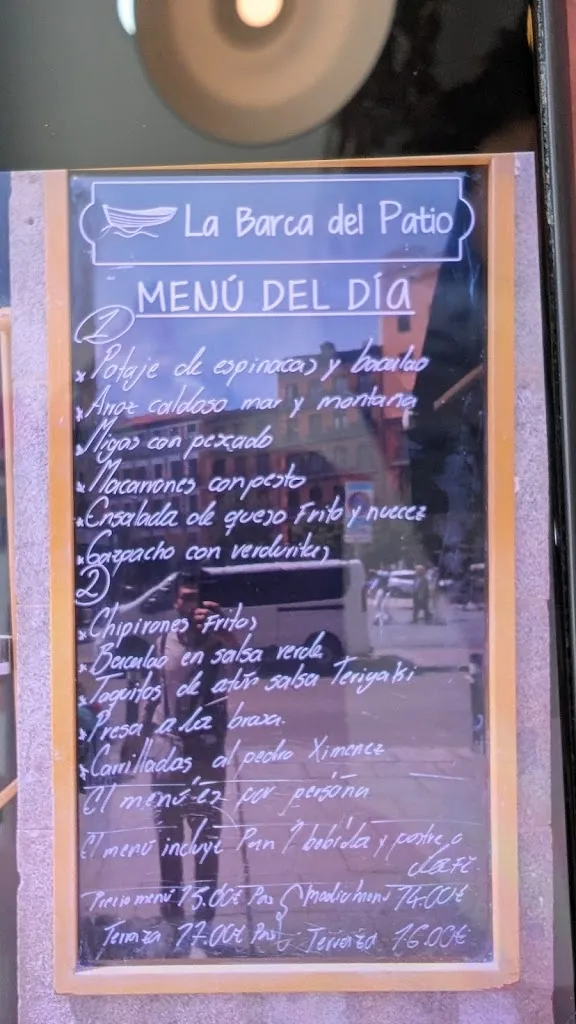 La Barca del Patio
MENÚ DEL DÍA
1
* Potaje de espinacas y bacalao
* Arroz caldoso mar y montana
* Migas con pescado
* Macarrones con pesto
* Ensalada de queso Frito y nuecez
* Gazpacho con verduritas
2
* Chipirones Fritos
* Bacalao en salsa verde
* Taquitos de atún salsa Teriyaki
* Presa a la braza.
* Carrilladas al pedro Ximenez
El menú es por persona
El menú incluye Pan 1 bebida y postre o
café.
Precio menú 15.00€ Pax Medio menú 14.00€
Terraza 17.00€ Pax Terraza 16.00€